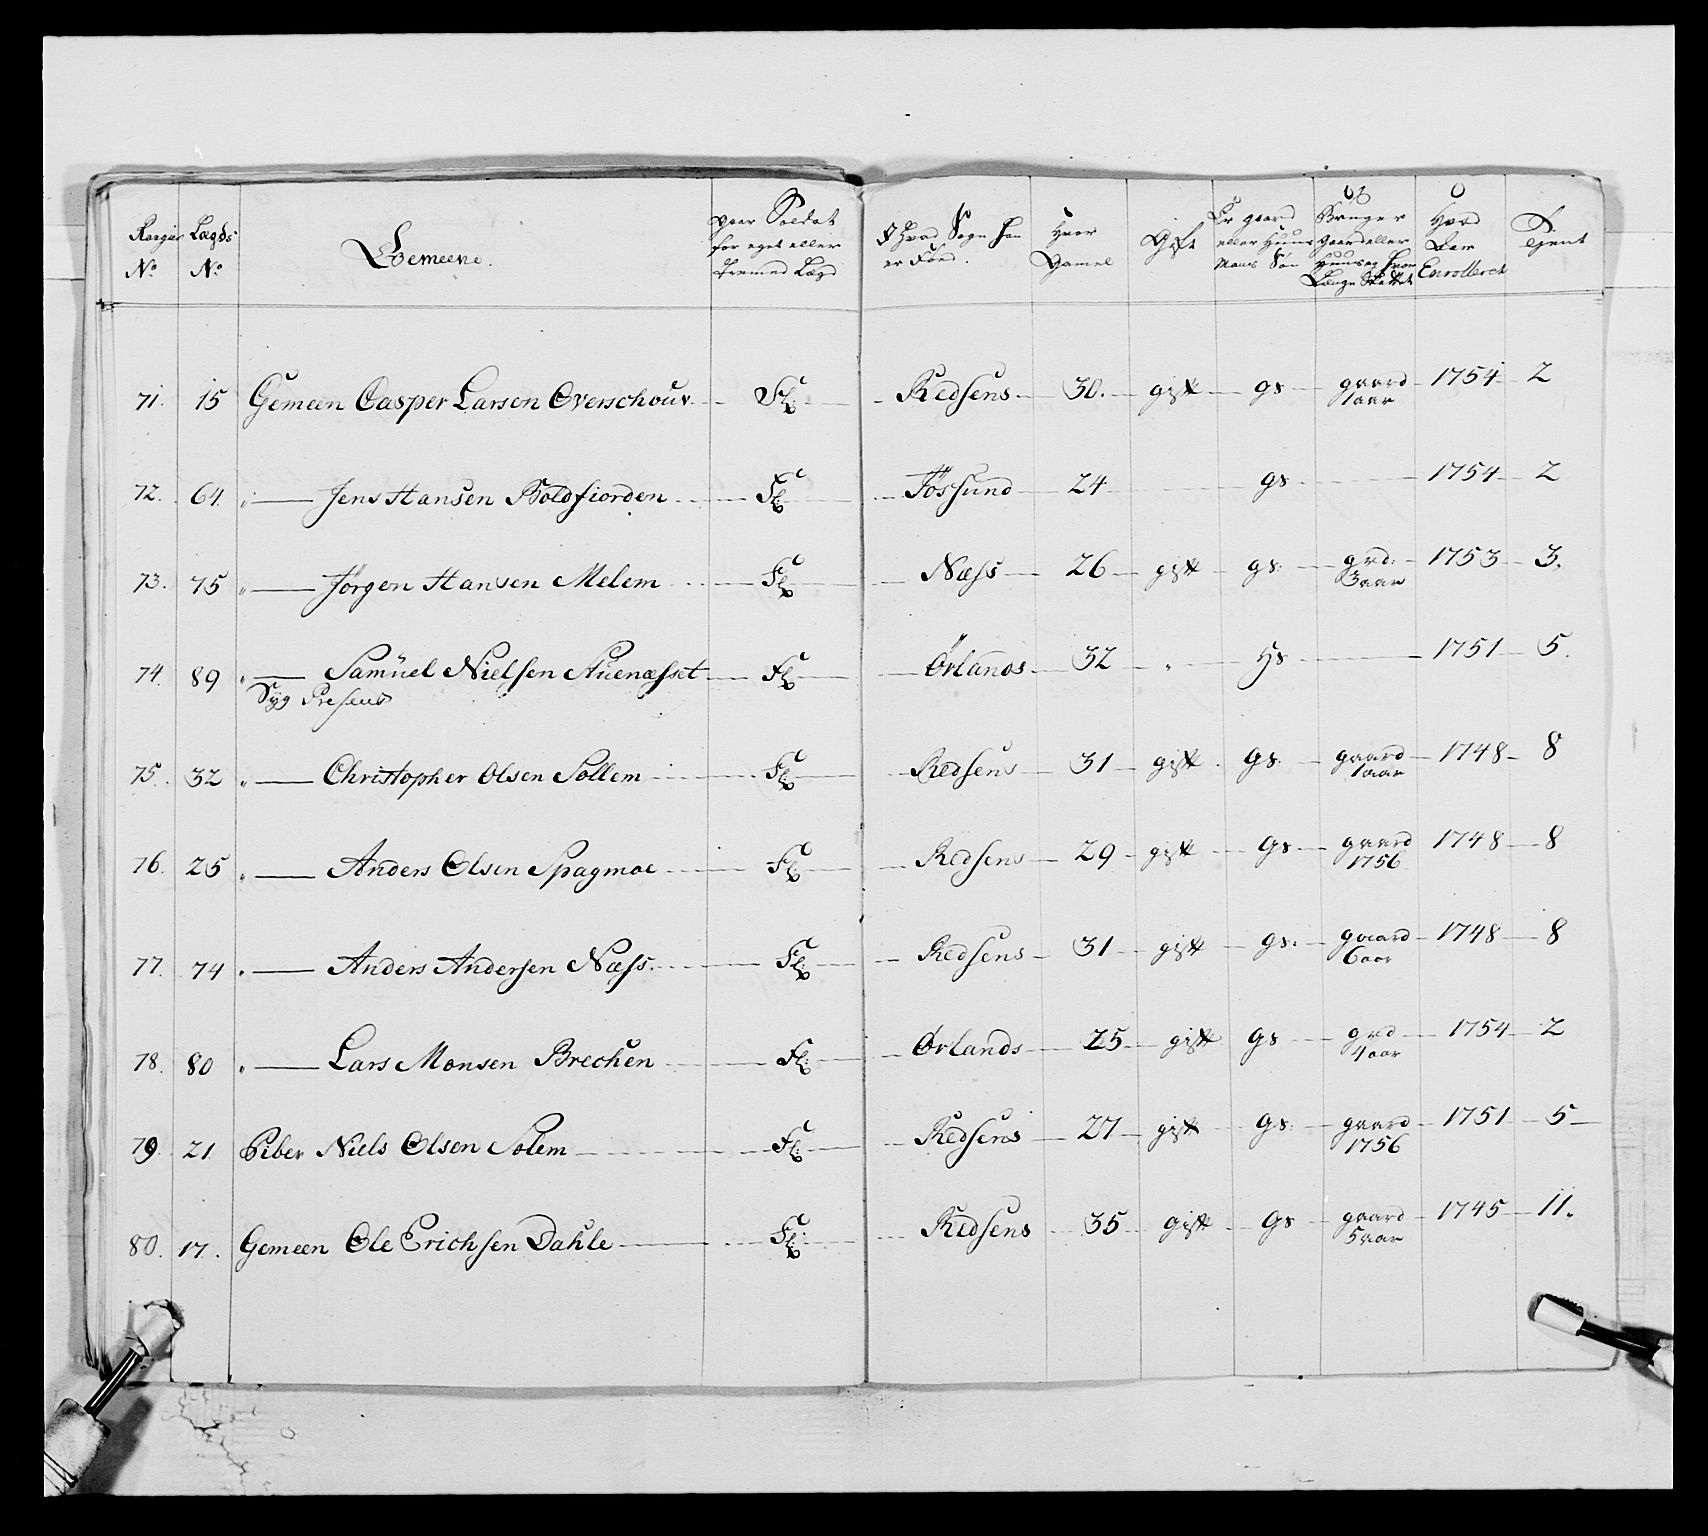 Rangir No | Lægds No | Gemeene. | paar Soldat for eget eller fremed Lægd | I hvad Sogn han er Föed. | Hvor Gamel | Gift | Er gaard eller Huus Mans Sön | Bruger Gaard eller Huus og hvor Længe | Enrolleret | Tient
71. | 15 | Gemeen Casper Larsen Overschouv | Fl: | Redsens | 30. | gift | gs | gaard 1 aar | 1754 | 2
72. | 64. | " — Jens Hansen Koldfiorden | Fl: | Jössund | 24 | | gs | | 1754 | 2
73. | 75 | " — Jörgen Hansen Melem | Fl: | Næss | 26 | gift | gs: | grd: 3 aar | 1753 | 3.
74. | 89 | " — Samuel Nielsen Auenæsset | Fl: | Örlands | 32 | " | Hs | | 1751 | 5.
Syg Presens
75. | 32 | " — Christopher Olsen Sollem | Fl: | Redsens | 31 | gift | gs: | gaard 1 aar | 1748 | 8
76. | 25 | " — Anders Olsen Spagmoe | Fl: | Redsens | 29 | gift | gs | gaard 1756 | 1748 | 8
77. | 74 | " — Anders Andersen Næss. | Fl: | Redsens | 31 | gift | gs: | gaard 6 aar | 1748 | 8
78. | 80 | " — Lars Monsen Brechen | Fl: | Örlands | 25 | gift | gs | grd 4 aar | 1754 | 2
79. | 21. | Piber Niels Olsen Solem | Fl: | Redsens | 27 | gift | gs: | gaard 1756 | 1751 | 5
80. | 17. | Gemeen Ole Erichsen Dahle | Fl: | Redsens | 35 | gift | gs | gaard 5 aar | 1745 | 11.